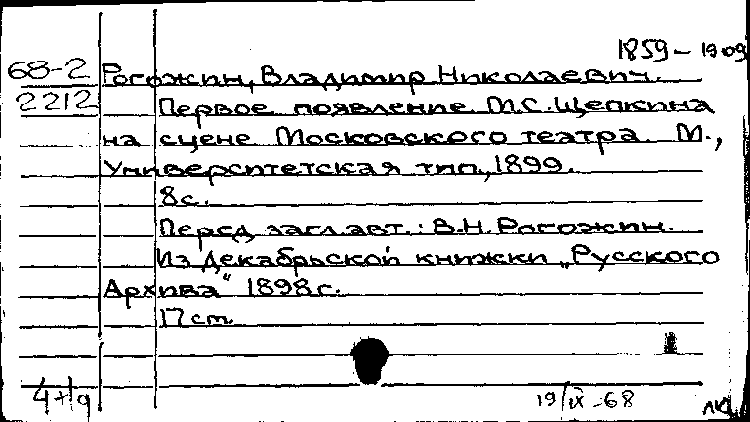 1859 - 1909
68-2 Рогожин, Владимир Николаевич.
2212 Первое появление М.С. Щепкина
на сцене Московского театра. М.,
Университетская тип., 1899.
8 с.
Перед загл. авт.: В.Н. Рогожин.
Из декабрьской книжки „Русского
Архива“ 1898 г.
17 см.
19/IX-68